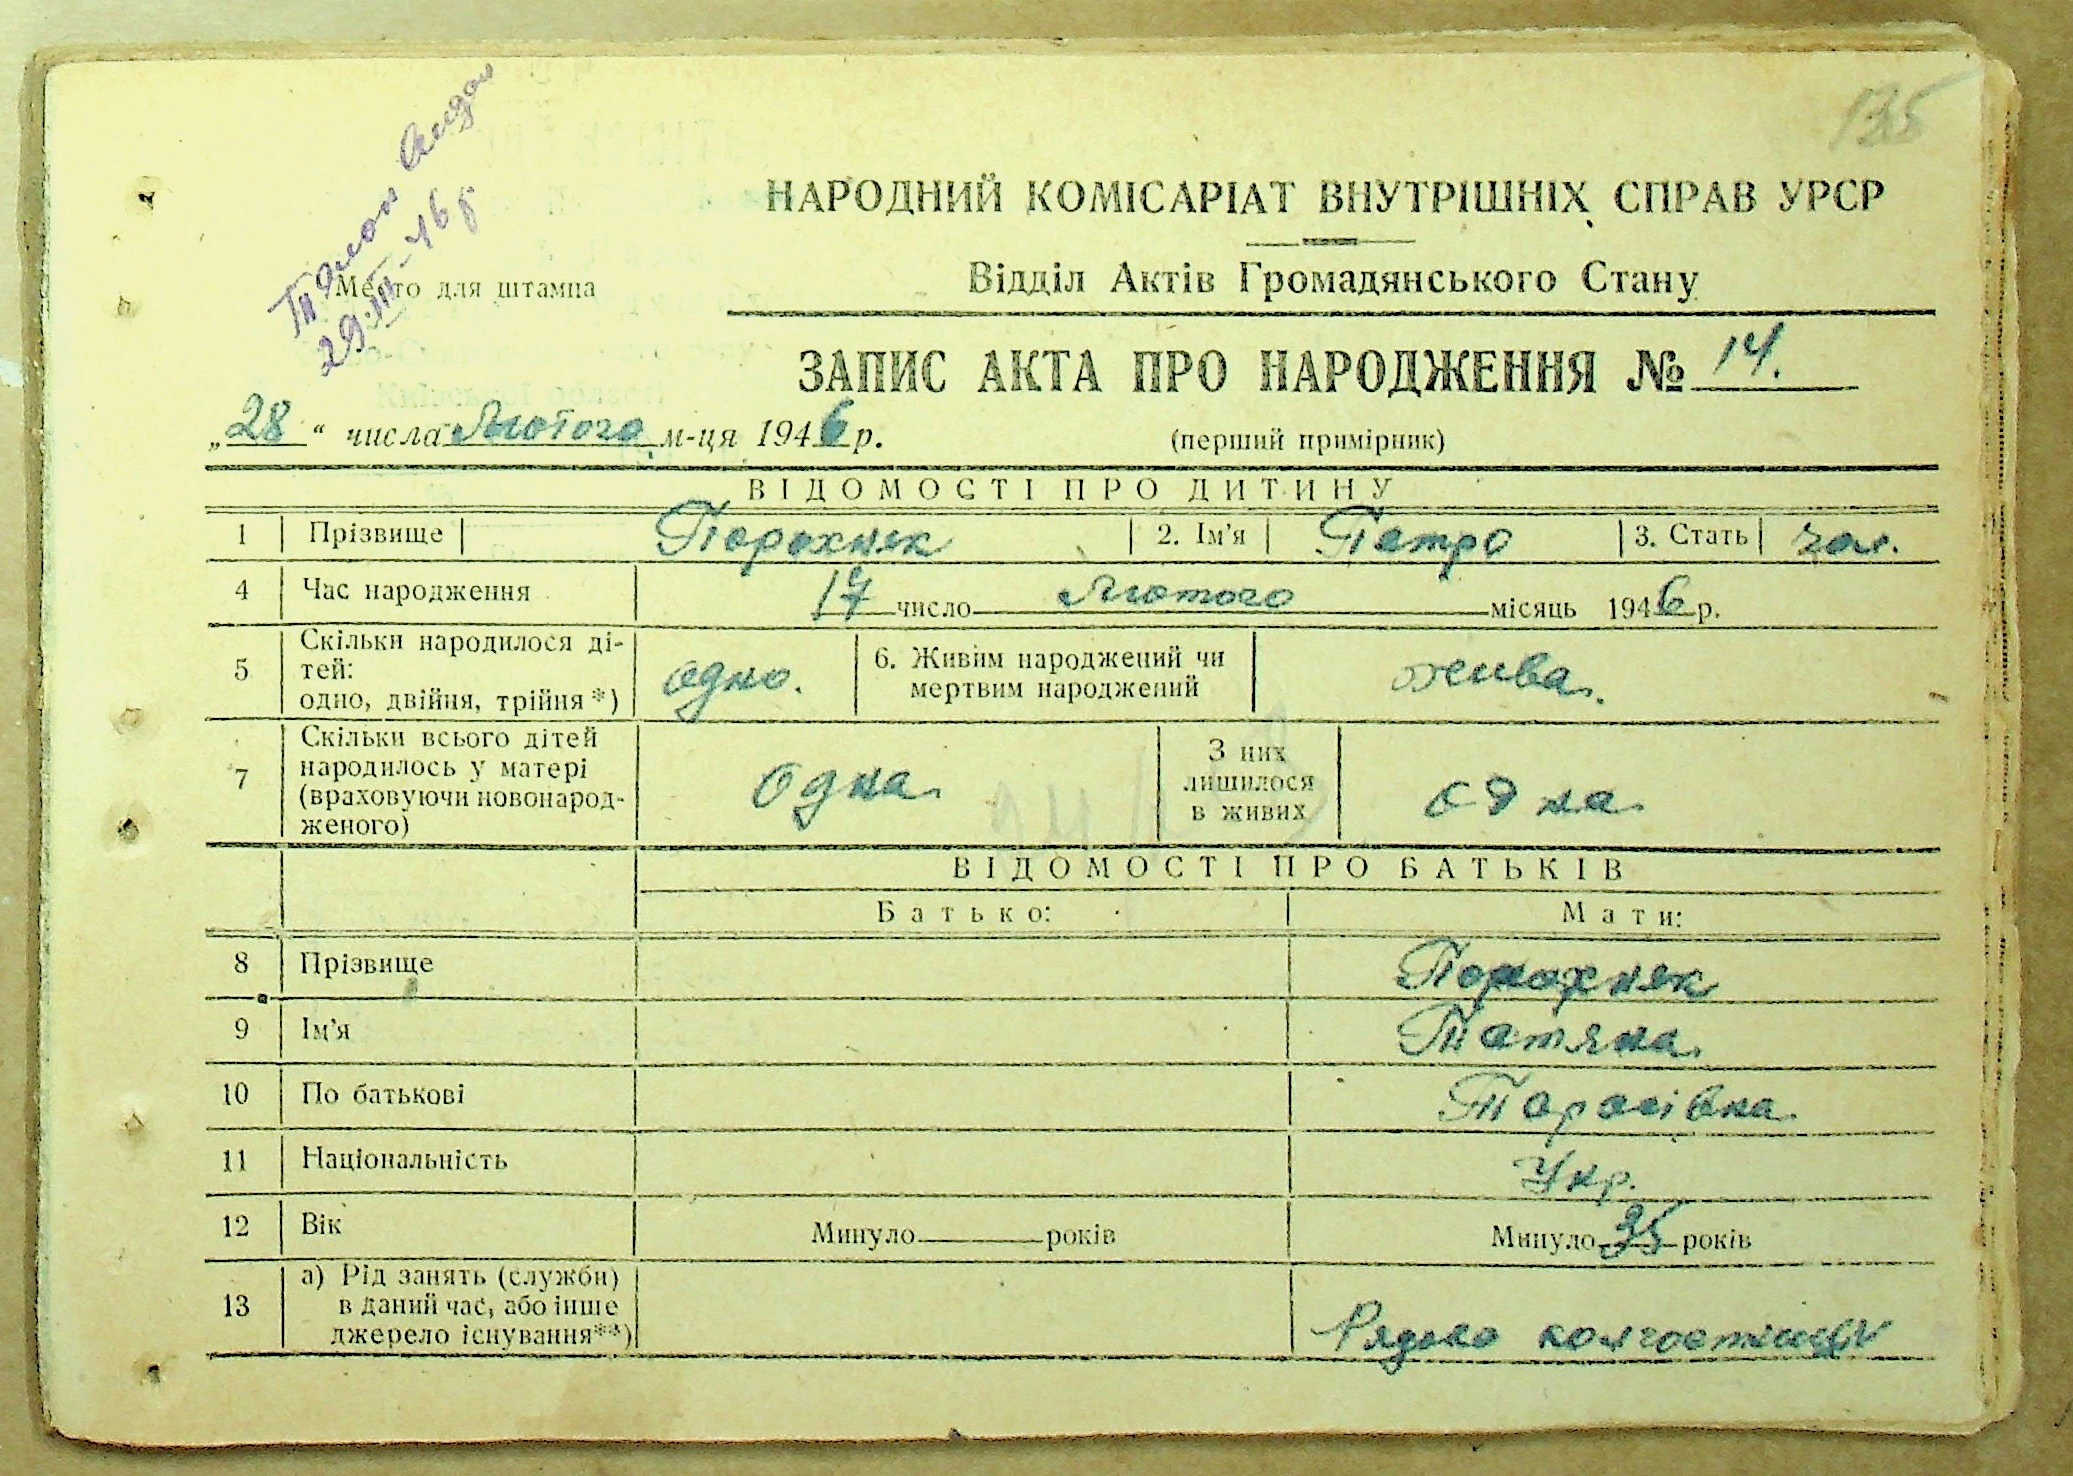 135
Талон видан
29.III-46 р
НАРОДНИЙ КОМІСАРІАТ ВНУТРІШНІХ СПРАВ УРСР
Место для штампа
Відділ Актів Громадянського Стану
ЗАПИС АКТА ПРО НАРОДЖЕННЯ № 14.
„28" числа Лютого м-ця 1946 р.
(перший примірник)
ВІДОМОСТІ ПРО ДИТИНУ
1 Прізвище Порохняк 2. Ім'я Петро 3. Стать чол.
4 Час народження 17 число Лютого місяць 1946 р.
5 Скільки народилося ді-
тей:
одно, двійня, трійня *) одно. 6. Живим народжений чи
мертвим народжений жива.
7 Скільки всього дітей
народилось у матері
(враховуючи новонарод-
женого) одна З них
лишилося
в живих одна
ВІДОМОСТІ ПРО БАТЬКІВ
Батько: Мати:
8 Прізвище Порохняк
9 Ім'я Татяна
10 По батькові Тарасівна
11 Національність Укр.
12 Вік Минуло років Минуло 35 років
13 а) Рід занять (служби)
в даний час, або інше
джерело існування**) Рядова